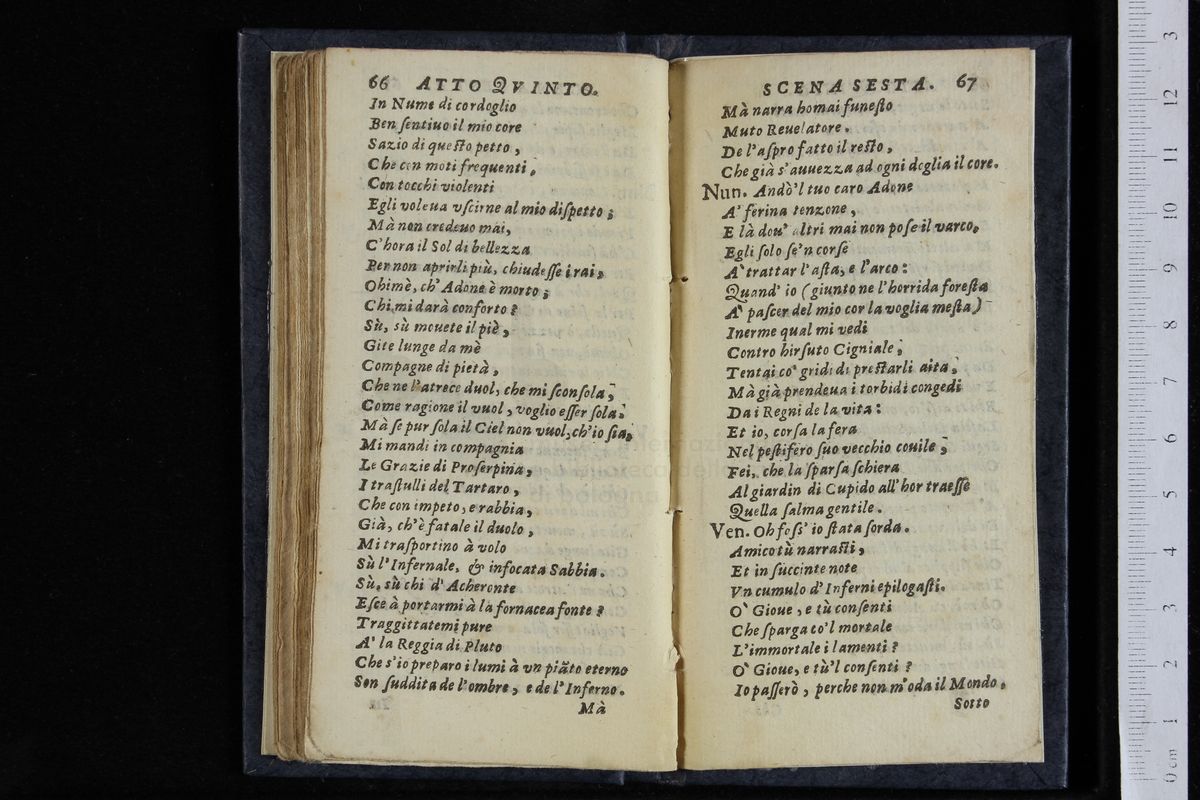 66 ATTO QVINTO.
In Nume di cordoglio
Ben ſentiuo il mio core
Sazio di queſto petto,
Che con moti frequenti,
Con tocchi violenti
Egli voleua vſcirne al mio diſpetto;
Mà non credeuo mai,
C'hora il Sol di bellezza
Per non aprirli più, chiudeſſe i rai,
Ohimè, ch'Adone è morto;
Chi mi darà conforto?
Sù, sù mouete il piè,
Gite lunge da mè
Compagne di pietà,
Che ne l'atroce duol, che mi ſconſola,
Come ragione il vuol, voglio eſſer ſola;
Mà ſe pur ſola il Ciel non vuol, ch'io ſia,
Mi mandi in compagnia
Le Grazie di Proſerpina,
I traſtulli del Tartaro,
Che con impeto, e rabbia,
Già, ch'è fatale il duolo,
Mi traſportino à volo
Sù l'Infernale, & infocata Sabbia.
Sù, sù chi d'Acheronte
Eſce à portarmi à la fornacea fonte?
Traggittatemi pure
A' la Reggia di Pluto
Che s'io preparo i lumi à vn piãto eterno
Son ſuddita de l'ombre, e de l'Inferno.
Mà
SCENA SESTA. 67
Mà narra homai funeſto
Muto Reuelatore.
De l'aſpro fatto il reſto,
Che già s'auuezza ad ogni doglia il core.
Nun. Andò'l tuo caro Adone
A' ferina tenzone,
E là dou' altri mai non poſe il varco,
Egli ſolo ſe'n corſe
A' trattar l'aſta, e l'arco:
Quand' io (giunto ne l'horrida foreſta
A' paſcer del mio cor la voglia meſta)
Inerme qual mi vedi
Contro hirſuto Cigniale,
Tentai co' gridi di preſtarli aita,
Mà già prendeua i torbidi congedi
Da i Regni de la vita:
Et io, corſa la fera
Nel peſtifero ſuo vecchio couile,
Fei, che la ſparſa ſchiera
Al giardin di Cupido all'hor traeſſe
Quella ſalma gentile.
Ven. Oh foſs' io ſtata ſorda.
Amico tù narraſti,
Et in ſuccinte note
Vn cumulo d'Inferni epilogaſti.
O' Gioue, e tù conſenti
Che ſparga co'l mortale
L'immortale i lamenti?
O' Gioue, e tù'l conſenti?
Io paſſerò, perche non m'oda il Mondo,
Sotto